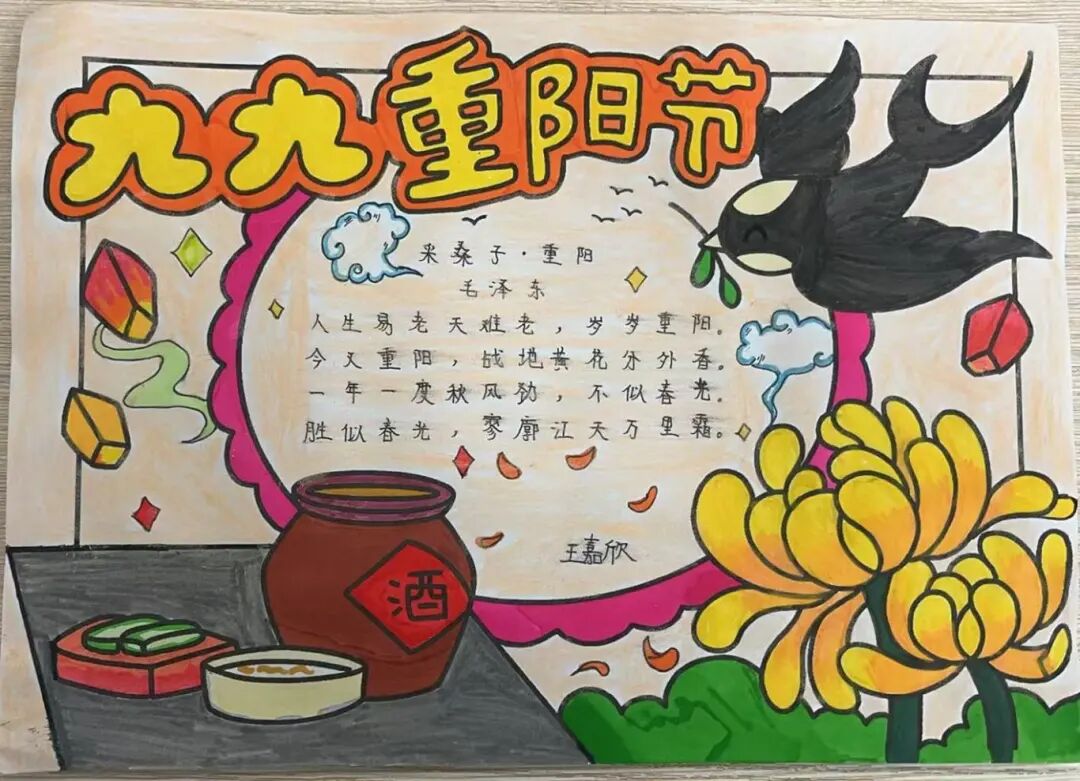 九九重阳节
采桑子·重阳
毛泽东
人生易老天难老，岁岁重阳。
今又重阳，战地黄花分外香。
一年一度秋风劲，不似春光。
胜似春光，寥廓江天万里霜。
王嘉欣
酒